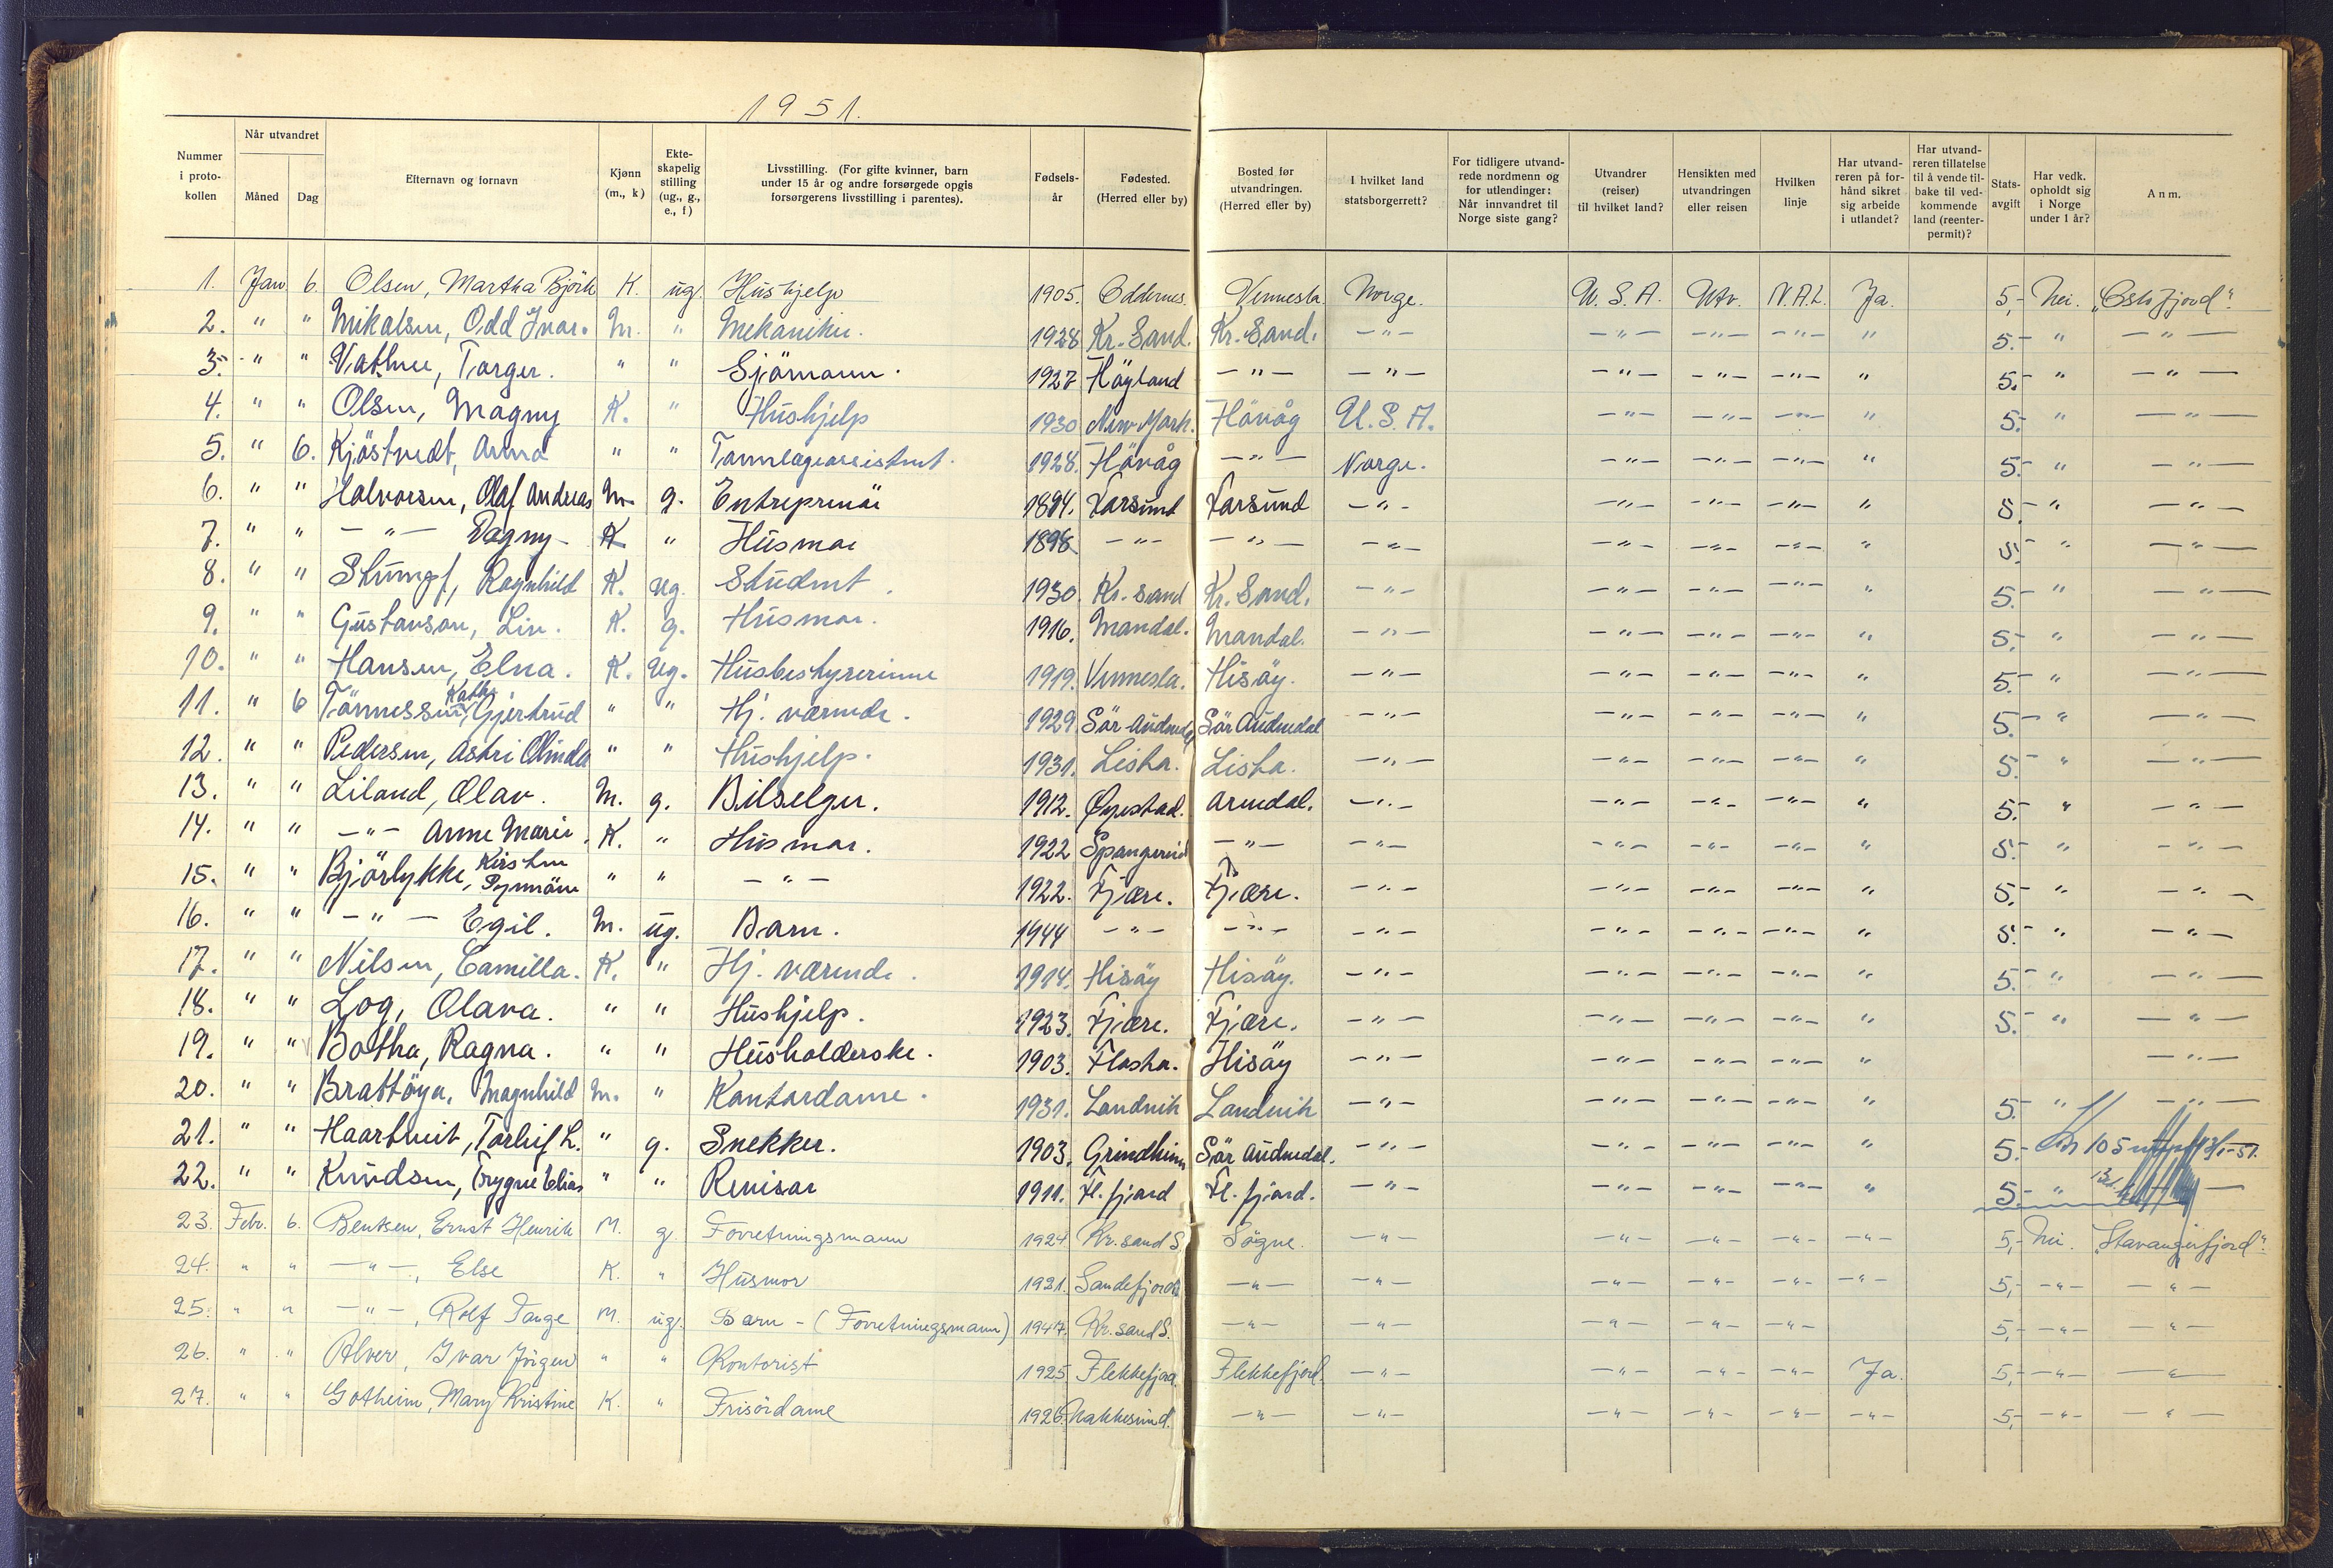 1951.
Nummer i protokollen | Når utvandret Måned Dag | Efternavn og fornavn | Kjønn (m., k) | Ekteskapelig stilling (ug., g., e., f) | Livsstilling. (For gifte kvinner, barn under 15 år og andre forsørgede opgis forsørgerens livsstilling i parentes). | Fødselsår | Fødested. (Herred eller by) | Bosted før utvandringen. (Herred eller by) | I hvilket land statsborgerrett? | For tidligere utvandrede nordmenn og for utlendinger: Når innvandret til Norge siste gang? | Utvandrer (reiser) til hvilket land? | Hensikten med utvandringen eller reisen | Hvilken linje | Har utvandreren på forhånd sikret sig arbeide i utlandet? | Har utvandreren tillatelse til å vende tilbake til vedkommende land (reenter-permit)? | Statsavgift | Har vedk. opholdt sig i Norge under 1 år? | Anm.
1. Jan 6. Olsen, Martha Björk K. ug. Hushjelp 1905. Oddernes. Vennesla Norge. U.S.A. Utv. N.A.L. Ja. 5,- Nei. "Oslofjord".
2. " " Mikalsen, Odd Ivar. M. " Mekaniker. 1928 Kr. Sand. Kr. Sand. -"- -"- -"- -"- " 5.- " -"-
3. " " Vatne, Torger. " " Sjömann. 1927 Höyland -"- -"- -"- -"- -"- " 5. " -"-
4. " " Olsen, Magny K. " Hushjelp 1930 New York. Hövåg U.S.A. -"- -"- -"- " 5.- " -"-
5. " 6. Kjöstvedt, Anna " " Tannlegeassistent. 1928. Hövåg -"- Norge. -"- -"- -"- " 5.- " -"-
6. " " Halvorsen, Olaf Andreas M. g. Entreprenör 1894. Farsund Farsund -"- -"- -"- -"- " 5.- " -"-
7. " " -"- Dagny K " Husmor 1898 -"- -"- -"- -"- -"- -"- " 5.- " -"-
8. " " Stumpf, Ragnhild K. ug. Student. 1930. Kr. sand Kr. Sand. -"- -"- -"- -"- " 5.- " -"-
9. " " Gustavson, Liv. K. g. Husmor. 1916. Mandal. Mandal. -"- -"- -"- -"- " 5.- " -"-
10. " " Hansen, Elna. K. ug. Husbestyrerinne 1919. Vennesla. Hisöy. -"- -"- -"- -"- " 5.- " -"-
11. " 6 Tönnessen, Kath. Gjertrud " " Hj. værende. 1929 Sör Audnedal Sör Audnedal -"- -"- -"- -"- " 5.- " -"-
12. " " Pedersen, Astri Olinda " " Hushjelp. 1931. Lista. Lista. -"- -"- -"- -"- " 5.- " -"-
13. " " Liland, Olav. M. g. Bilselger. 1912. Øyestad. Arendal. -"- -"- -"- -"- " 5.- " -"-
14. " " -"- Anne Marie. K. " Husmor. 1922 Spangereid -"- -"- -"- -"- -"- " 5.- " -"-
15. " " Björlykke, Kirsten " " -"- 1922. Fjære. Fjære. -"- -"- -"- -"- " 5.- " -"-
16. " " -"- Egil. M. ug. Barn. 1944 -"- -"- -"- -"- -"- -"- " 5.- " -"-
17. " " Nilsen, Camilla. K. " Hj. værende. 1914. Hisöy Hisöy. -"- -"- -"- -"- " 5.- " -"-
18. " " Log, Olava. " " Hushjelp. 1923. Fjære. Fjære. -"- -"- -"- -"- " 5.- " -"-
19. " " Botha, Ragna. " " Husholderske. 1903. Flosta. Hisöy -"- -"- -"- -"- " -"-
20. " " Brattöya, Magnhild M. " Kontordame. 1931. Landvik Landvik -"- -"- -"- -"- " 5.- " -"-
21. " " Haartveit, Torleif L. " g. Snekker. 1903. Grindheim Sör Audnedal. -"- -"- -"- -"- " 5.- Kr 105
22. " " Knudsen, Trygve Elias " " Revisor 1911. Fl. fjord Fl. fjord. -"- -"- -"- -"- " 5.- "
23. Febr. 6. Bentsen, Ernst Henrik M. g. Forretningsmann 1924. Kr. sand S. Sögne. -"- -"- -"- -"- -"- 5,- Nei. "Stavangerfjord".
24. " " -"-, Else K. " Husmor 1921. Sandefjord -"- -"- -"- -"- -"- -"- 5,- -"- -"-
25. " " -"-, Rolf Tange M. ug. Barn - (Forretningsmann) 1947. Kr. sand S. -"- -"- -"- -"- -"- 5,- -"- -"-
26. " " Alver, Ivar Jörgen " " Kontorist 1925 Flekkefjord. Flekkefjord. -"- -"- -"- -"- Ja. 5,- -"- -"-
27. " " Gotheim, Mary Kristine K. " Frisördame 1926. Rakkesund. -"- -"- -"- -"- -"- -"- 5,- -"- -"-